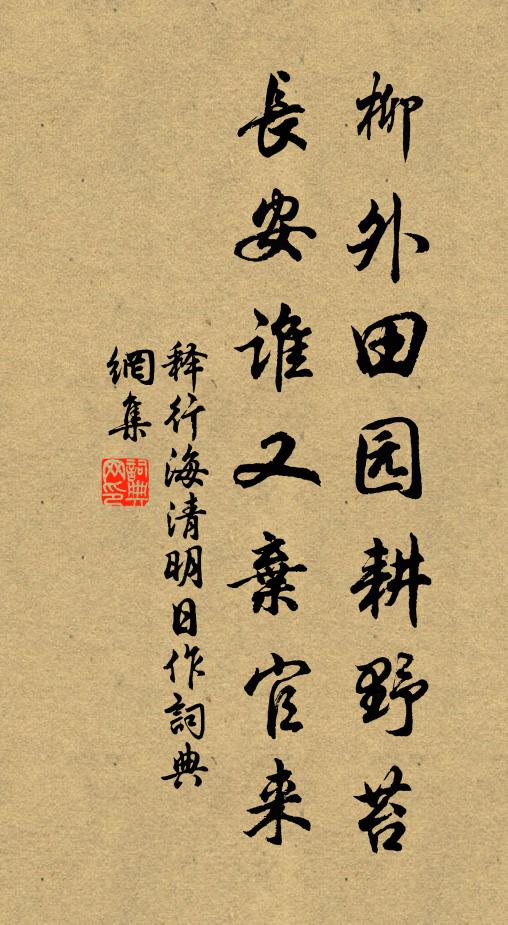 柳外田园耕野苔
長安誰又棄官来
释行海清明日作詞典
網集
詞典
网印